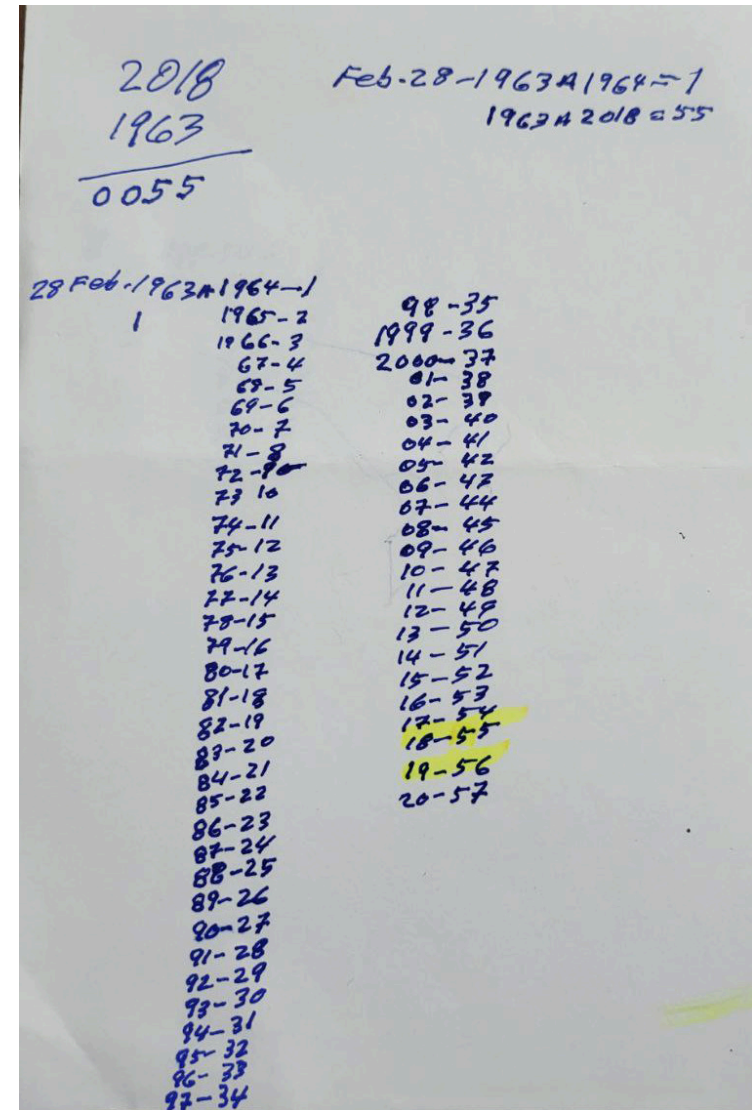 2018
1963
0055
Feb-28-1963 A 1964=1
1963 A 2018=55
28 Feb-1963 A 1964-1
1
1965-2
1966-3
67-4
68-5
69-6
70-7
71-8
72-
73 10
74-11
75-12
76-13
77-14
78-15
79-16
80-17
81-18
82-19
83-20
84-21
85-22
86-23
87-24
88-25
89-26
90-27
91-28
92-29
93-30
94-31
95-32
96-33
97-34
98-35
1999-36
2000-37
01-38
02-39
03-40
04-41
05-42
06-43
07-44
08-45
09-46
10-47
11-48
12-49
13-50
14-51
15-52
16-53
17-54
18-55
19-56
20-57